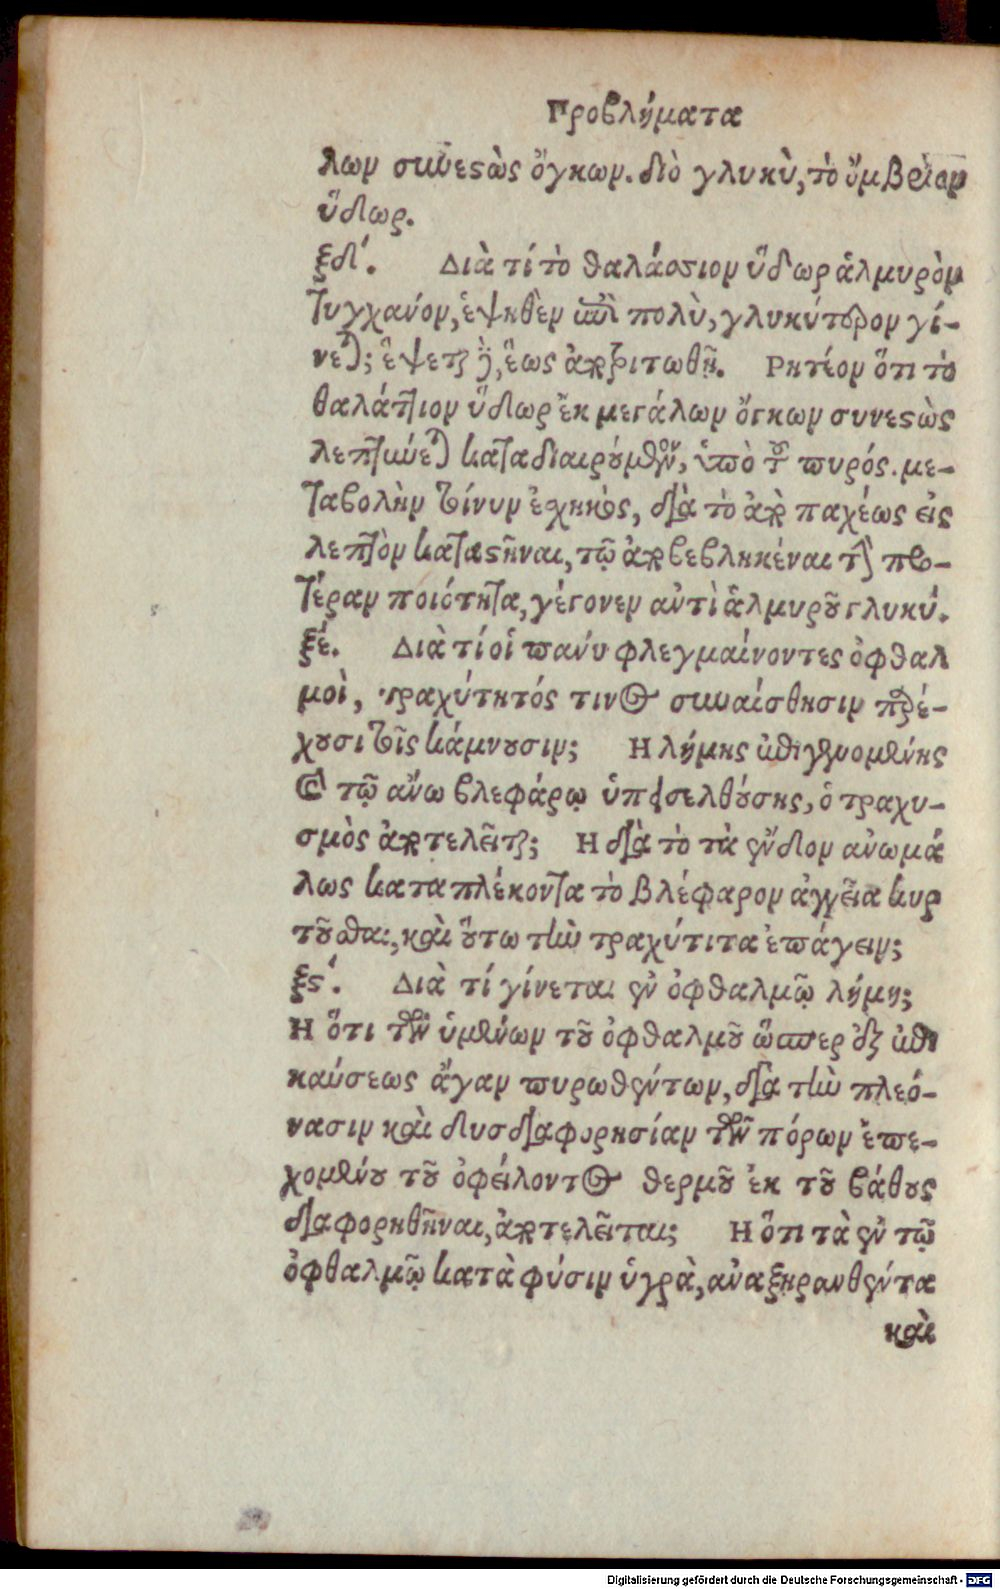 Προβλήματα
λων συνεστὼς ὄγκων. διὸ γλυκὺ, τὸ ὄμβριον
ὕδωρ.
ξδ΄. Διὰ τί τὸ θαλάσσιον ὕδωρ ἁλμυρὸν
τυγχάνον, ἑψηθὲν ἐπὶ πολὺ, γλυκύτερον γί-
νεται; ἕψεται δὲ, ἕως ἀποτριτωθῇ. Ρητέον ὅτι τὸ
θαλάττιον ὕδωρ ἐκ μεγάλων ὄγκων συνεστὼς
λεπτύνεται καταδιαιρούμενον, ὑπὸ τοῦ πυρός. με-
ταβολὴν τοίνυν ἐσχηκὸς, διὰ τὸ ἀπὸ παχέως εἰς
λεπτὸν καταστῆναι, τῷ ἀποβεβληκέναι τὴν προ-
τέραν ποιότητα, γέγονεν ἀντὶ ἁλμυροῦ γλυκύ.
ξέ. Διὰ τί οἱ πανύ φλεγμαίνοντες ὀφθαλ
μοὶ, τραχύτητός τινος συναίσθησιν παρέ-
χουσι τοῖς κάμνουσιν; Η λήμης ἐπιγενομένης
καὶ τῷ ἄνω βλεφάρῳ ὑπεισελθούσης, ὁ τραχυ-
σμὸς ἀποτελεῖται; Η διὰ τὸ τὰ ἔνδον ἀνωμά
λως καταπλέκοντα τὸ βλέφαρον ἀγγεῖα κυρ
τοῦσθαι, καὶ οὕτω τὴν τραχύτιτα ἐπάγειν;
ξϛ΄. Διὰ τί γίνεται ἐν ὀφθαλμῷ λήμη;
Η ὅτι τῶν ὑμένων τοῦ ὀφθαλμοῦ ὥσπερ ἐξ ἐπι
καύσεως ἄγαν πυρωθέντων, διὰ τὴν πλεό-
νασιν καὶ δυσδιαφορησίαν τῶν πόρων ἐπε-
χομένου τοῦ ὀφείλοντος θερμοῦ ἐκ τοῦ βάθους
διαφορηθῆναι, ἀποτελεῖται; Η ὅτι τὰ ἐν τῷ
ὀφθαλμῷ κατὰ φύσιν ὑγρὰ, ἀναξηρανθέντα
καὶ
Digitalisierung gefördert durch die Deutsche Forschungsgemeinschaft - DFG